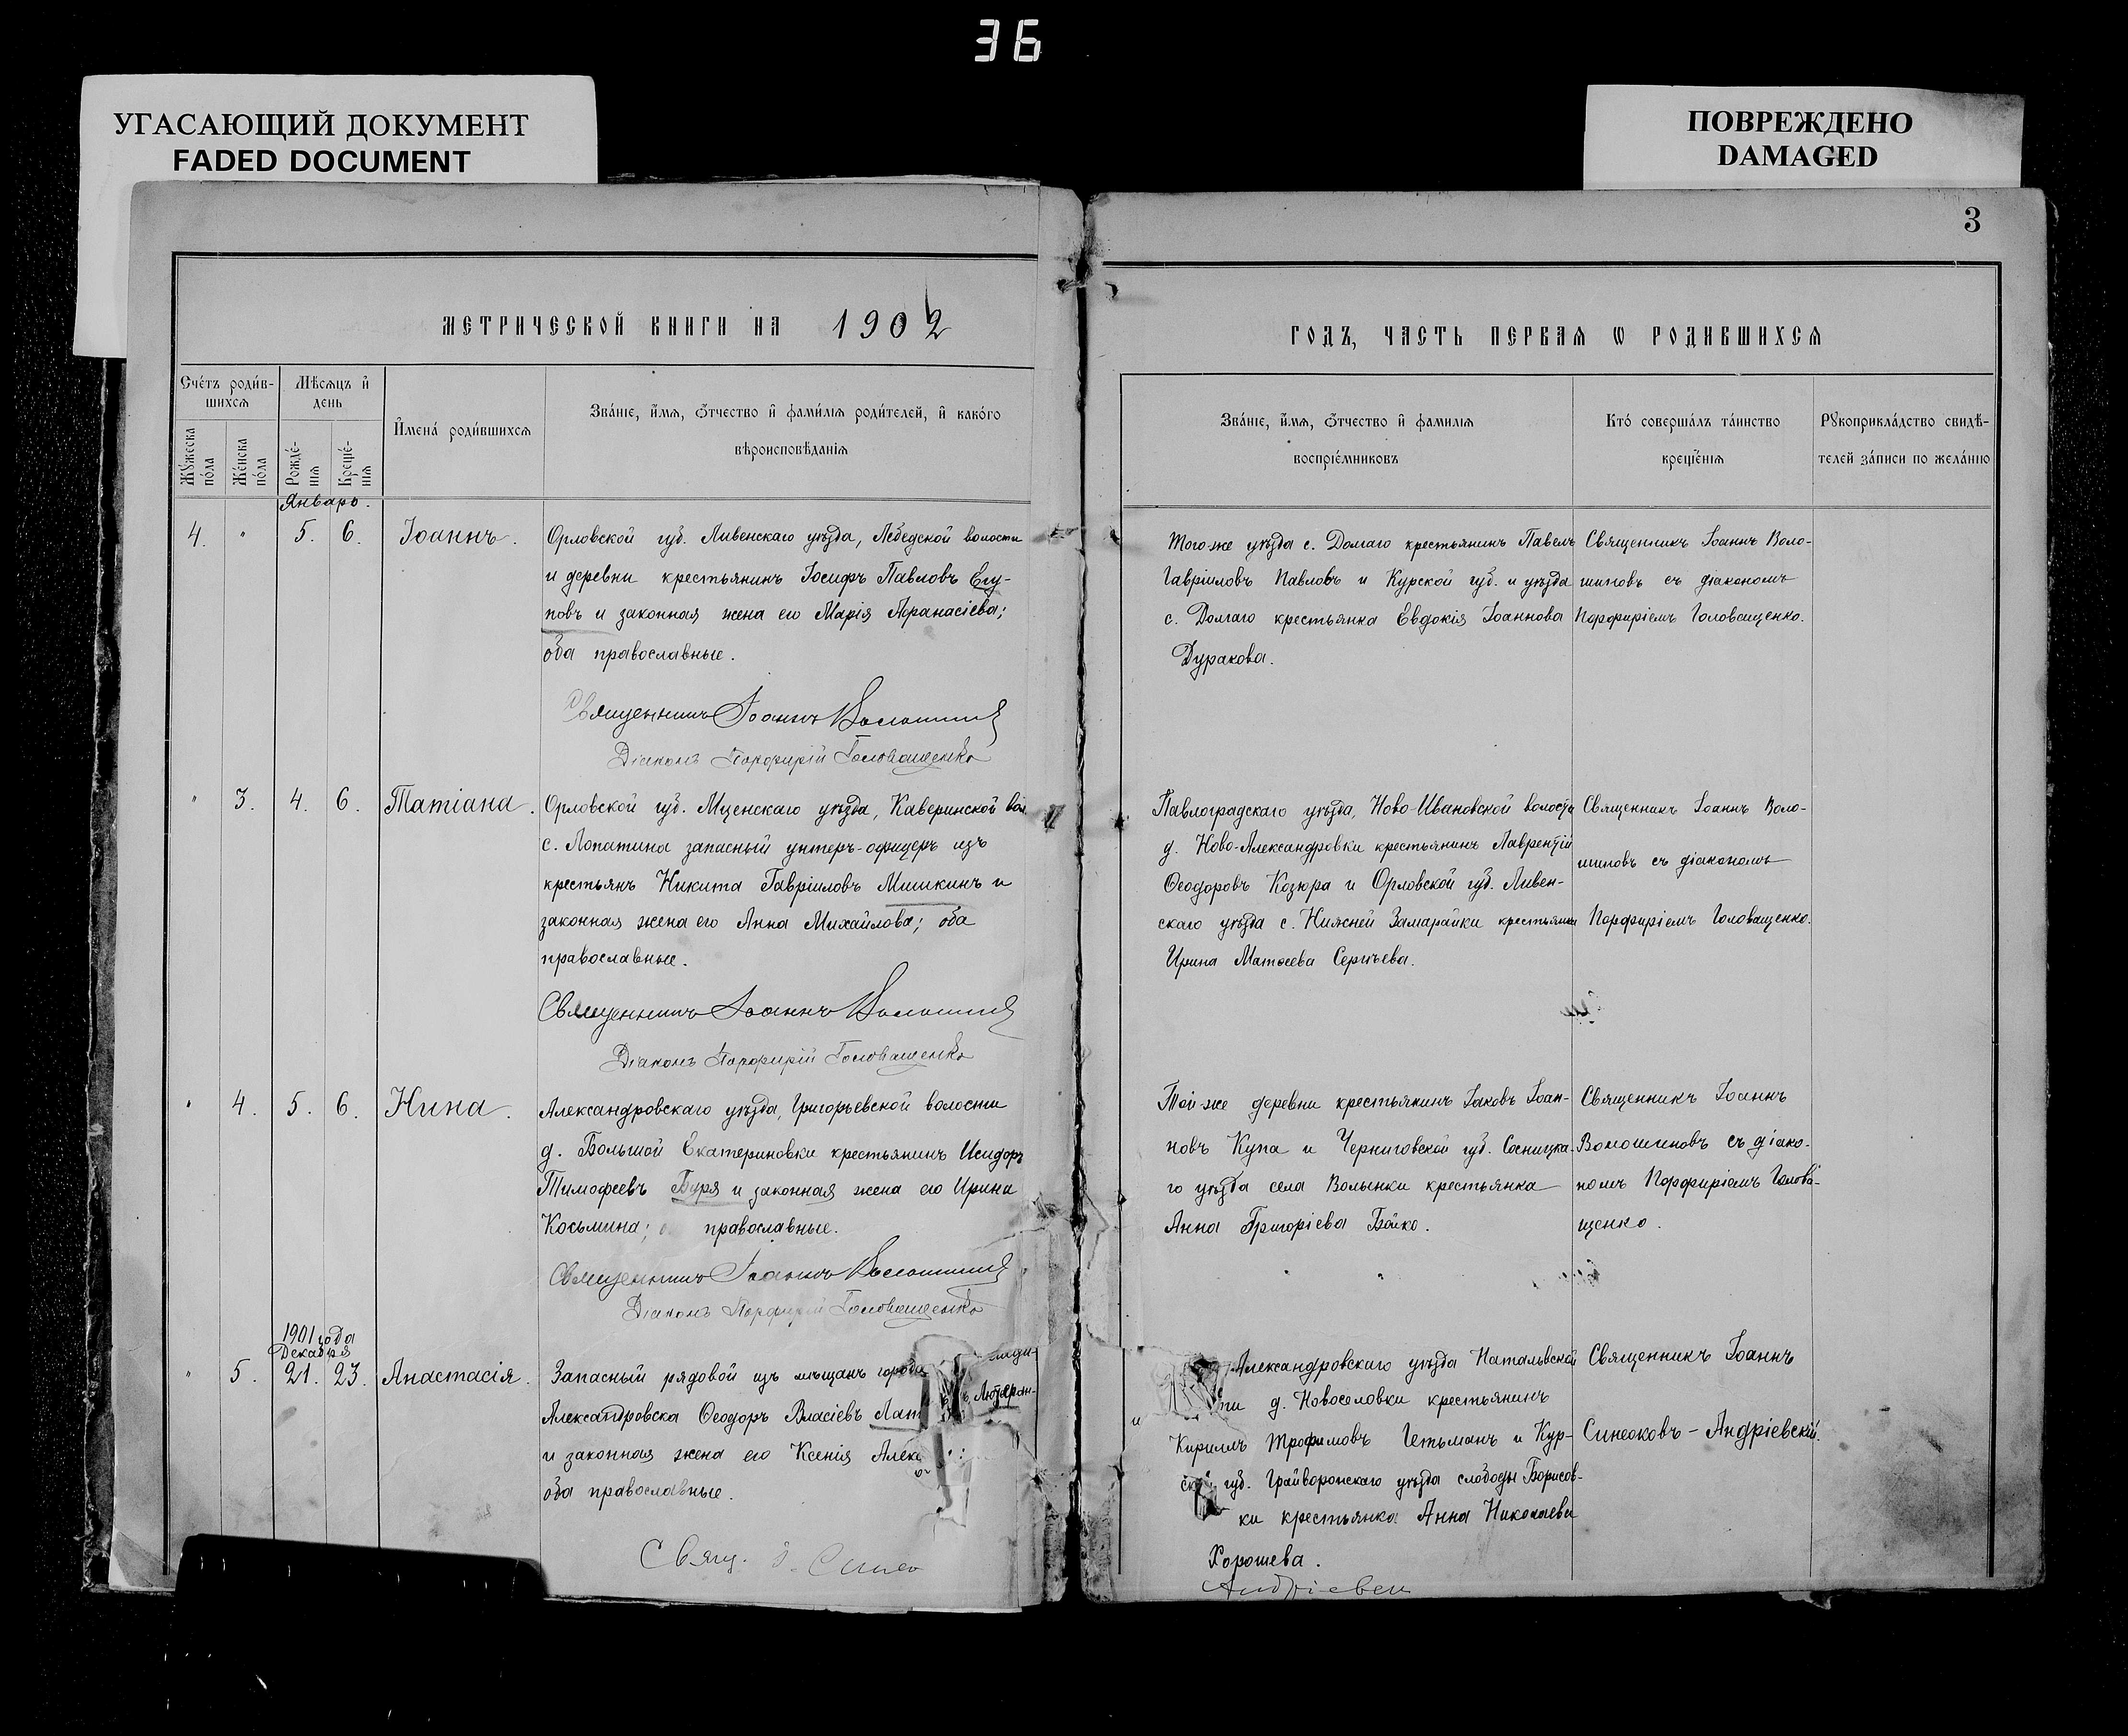 36
УГАСАЮЩИЙ ДОКУМЕНТ
FADED DOCUMENT
ПОВРЕЖДЕНО
DAMAGED
3
МЕТРИЧЕСКОЙ КНИГИ НА 1902
ГОДЪ, ЧАСТЬ ПЕРВАЯ Ѡ РОДИВШИХСЯ
Счетъ родив-
шихся
Мѣсяцъ и
день
Мужеска
пола
Женска
пола
Рожде-
нія
Креще-
нія
Имена родившихся
Званіе, имя, отчество и фамилія родителей, и какого
вѣроисповѣданія
Званіе, имя, отчество и фамилія
воспріемниковъ
Кто совершалъ таинство
крещенія
Рукоприкладство свидѣ-
телей записи по желанію
Январь.
4. " 5. 6. Іоаннъ.
Орловской губ. Ливенскаго уѣзда, Лебедской волости
и деревни крестьянинъ Іосифъ Павловъ Егу-
повъ и законная жена его Марія Афанасіева;
оба православные.
Священникъ Іоаннъ Волошинъ
Діаконъ Порфирій Головащенко
Того-же уѣзда с. Долгаго крестьянинъ Павелъ
Гавріиловъ Павловъ и Курской губ. и уѣзда
с. Долгаго крестьянка Евдокія Іоаннова
Дуракова.
Священникъ Іоаннъ Воло-
шиновъ съ діакономъ
Порфиріемъ Головащенко.
" 3. 4. 6. Татіана.
Орловской губ. Мценскаго уѣзда, Каверинской вол.
с. Лопатина запасный унтеръ-офицеръ изъ
крестьянъ Никита Гавріиловъ Мишкинъ и
законная жена его Анна Михайлова; оба
православные.
Священникъ Іоаннъ Волошинъ
Діаконъ Порфирій Головащенко
Павлоградскаго уѣзда, Ново-Ивановской волости
д. Ново-Александровки крестьянинъ Лаврентій
Ѳеодоровъ Козюра и Орловской губ. Ливен-
скаго уѣзда с. Нижней Замарайки крестьянка
Ирина Матѳеева Сергѣева.
Священникъ Іоаннъ Воло-
шиновъ съ діакономъ
Порфиріемъ Головащенко.
" 4. 5. 6. Нина.
Александровскаго уѣзда, Григорьевской волости
д. Большой Екатериновки крестьянинъ Исидоръ
Тимофеевъ Буря и законная жена его Ирина
Косьмина; православные.
Священникъ Іоаннъ Волошинъ
Діаконъ Порфирій Головащенко
Той-же деревни крестьянинъ Іаковъ Іоан-
новъ Купа и Черниговской губ. Сосницка-
го уѣзда села Волынки крестьянка
Анна Григоріева Бойко.
Священникъ Іоаннъ
Волошиновъ съ діако-
номъ Порфиріемъ Голова-
щенко.
1901 года
Декабря
" 5. 21. 23. Анастасія.
Запасный рядовой изъ мѣщанъ города
Александровска Ѳеодоръ Власіевъ Лат
и законная жена его Ксенія Алекс
оба православные.
Свящ. І. Синео
Александровскаго уѣзда Натальевской
ти д. Новоселовки крестьянинъ
Кириллъ Трофимовъ Гетьманъ и Кур-
ской губ. Грайворонскаго уѣзда слободы Борисов-
ки крестьянка Анна Николаева
Хорошева.
Андріевск
Священникъ Іоаннъ
Синеоковъ-Андріевскій.